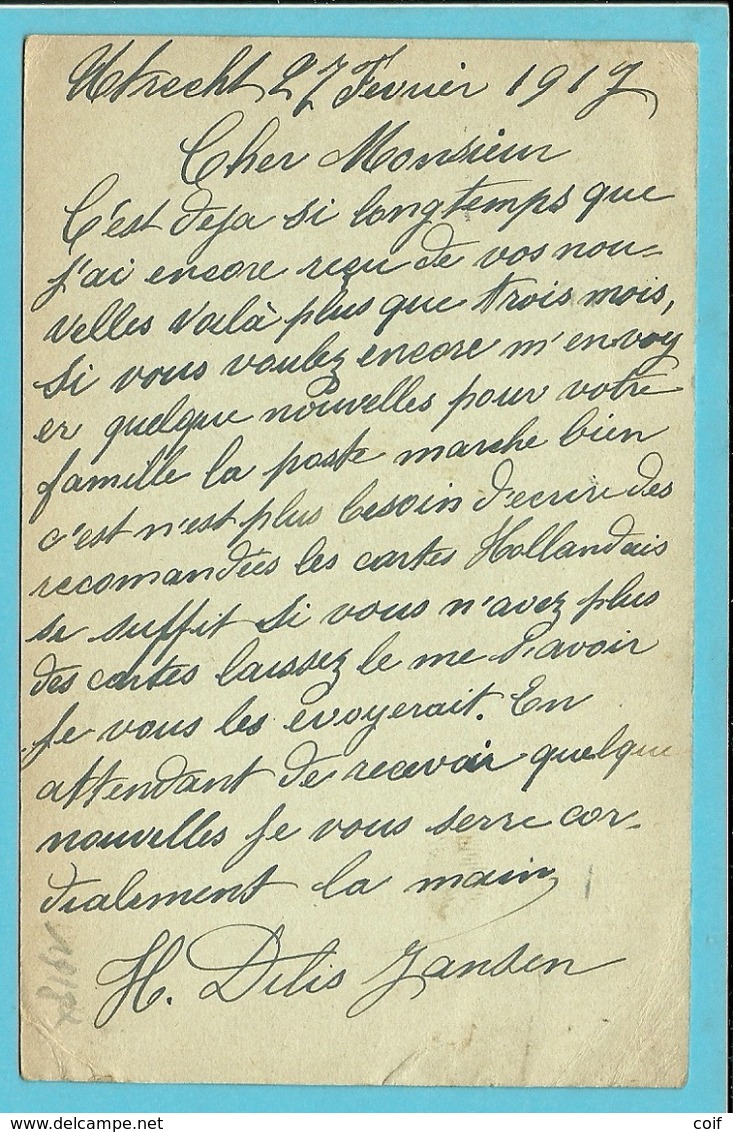 Utrecht 27 Fevrier 1917
Cher Monsieur
C'est deja si longtemps que
j'ai encore reçu de vos nou-
velles Voilà plus que trois mois,
Si vous voulez encore m'envoy
er quelque nouvelles pour votre
famille la poste marche bien
c'est n'est plus besoin d'ecrire des
recomandées les cartes Hollandais
se suffit Si vous n'avez plus
des cartes laissez le me s'avoir
Je vous les evoyerait. En
attendant de recevoir quelque
nouvelles Je vous serre cor-
dialement la main
H. Dilis Jansen
www.delcampe.net
coif